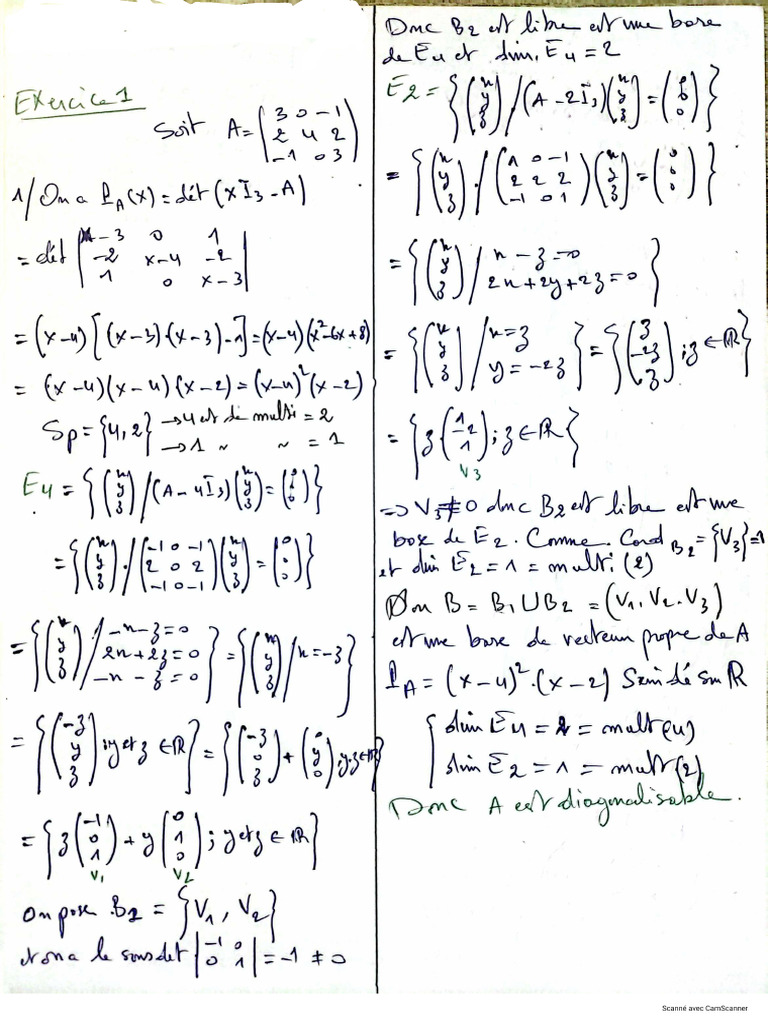 Exercice 1
Soit A = (3 0 -1
2 4 2
-1 0 3)
1/ On a P_A(X) = dét (X I3 - A)
= dét |X-3 0 1
-2 X-4 -2
1 0 X-3|
= (X-4) [(X-3)·(X-3)-1] = (X-4)(X²-6X+8)
= (X-4)(X-4)(X-2) = (X-4)²(X-2)
Sp = {4,2} → 4 est de multi = 2
→ 1 " " = 1
E4 = {(x y z) / (A-4I3)(x y z) = (0 0 0)}
= {(x y z) / (-1 0 -1
2 0 2
-1 0 -1)(x y z) = (0 0 0)}
= {(x y z) / -x-z=0
2x+2z=0
-x-z=0} = {(x y z) / x=-z}
= {(-z y z) ; y et z ∈ IR} = {(-z 0 z) + (0 y 0) ; y,z ∈ IR}
= {z(-1 0 1) + y(0 1 0) ; y et z ∈ IR}
V1 V2
On pose B2 = {V1, V2}
et on a le sous det |-1 0
0 1| = -1 ≠ 0
Donc B2 est libre est une base
de E4 et dim. E4 = 2
E2 = {(x y z) / (A-2I3)(x y z) = (0 0 0)}
= {(x y z) / (1 0 -1
2 2 2
-1 0 1)(x y z) = (0 0 0)}
= {(x y z) / x-z=0
2x+2y+2z=0}
= {(x y z) / x=z
y=-2z} = {(z -2z z) ; z ∈ IR}
= {z(1 -2 1) ; z ∈ IR}
V3
=> V3 ≠ 0 donc B2 est libre est une
base de E2. Comme. Card B2 = {V3} = 1
et dim E2 = 1 = multi (2)
Don B = B1 ∪ B2 = (V1, V2, V3)
est une base de vecteur propre de A
P_A = (X-4)²·(X-2) Scindé sur IR
{dim E4 = 2 = mult(4)
dim E2 = 1 = mult(2)
Donc A est diagonalisable.
Scanné avec CamScanner